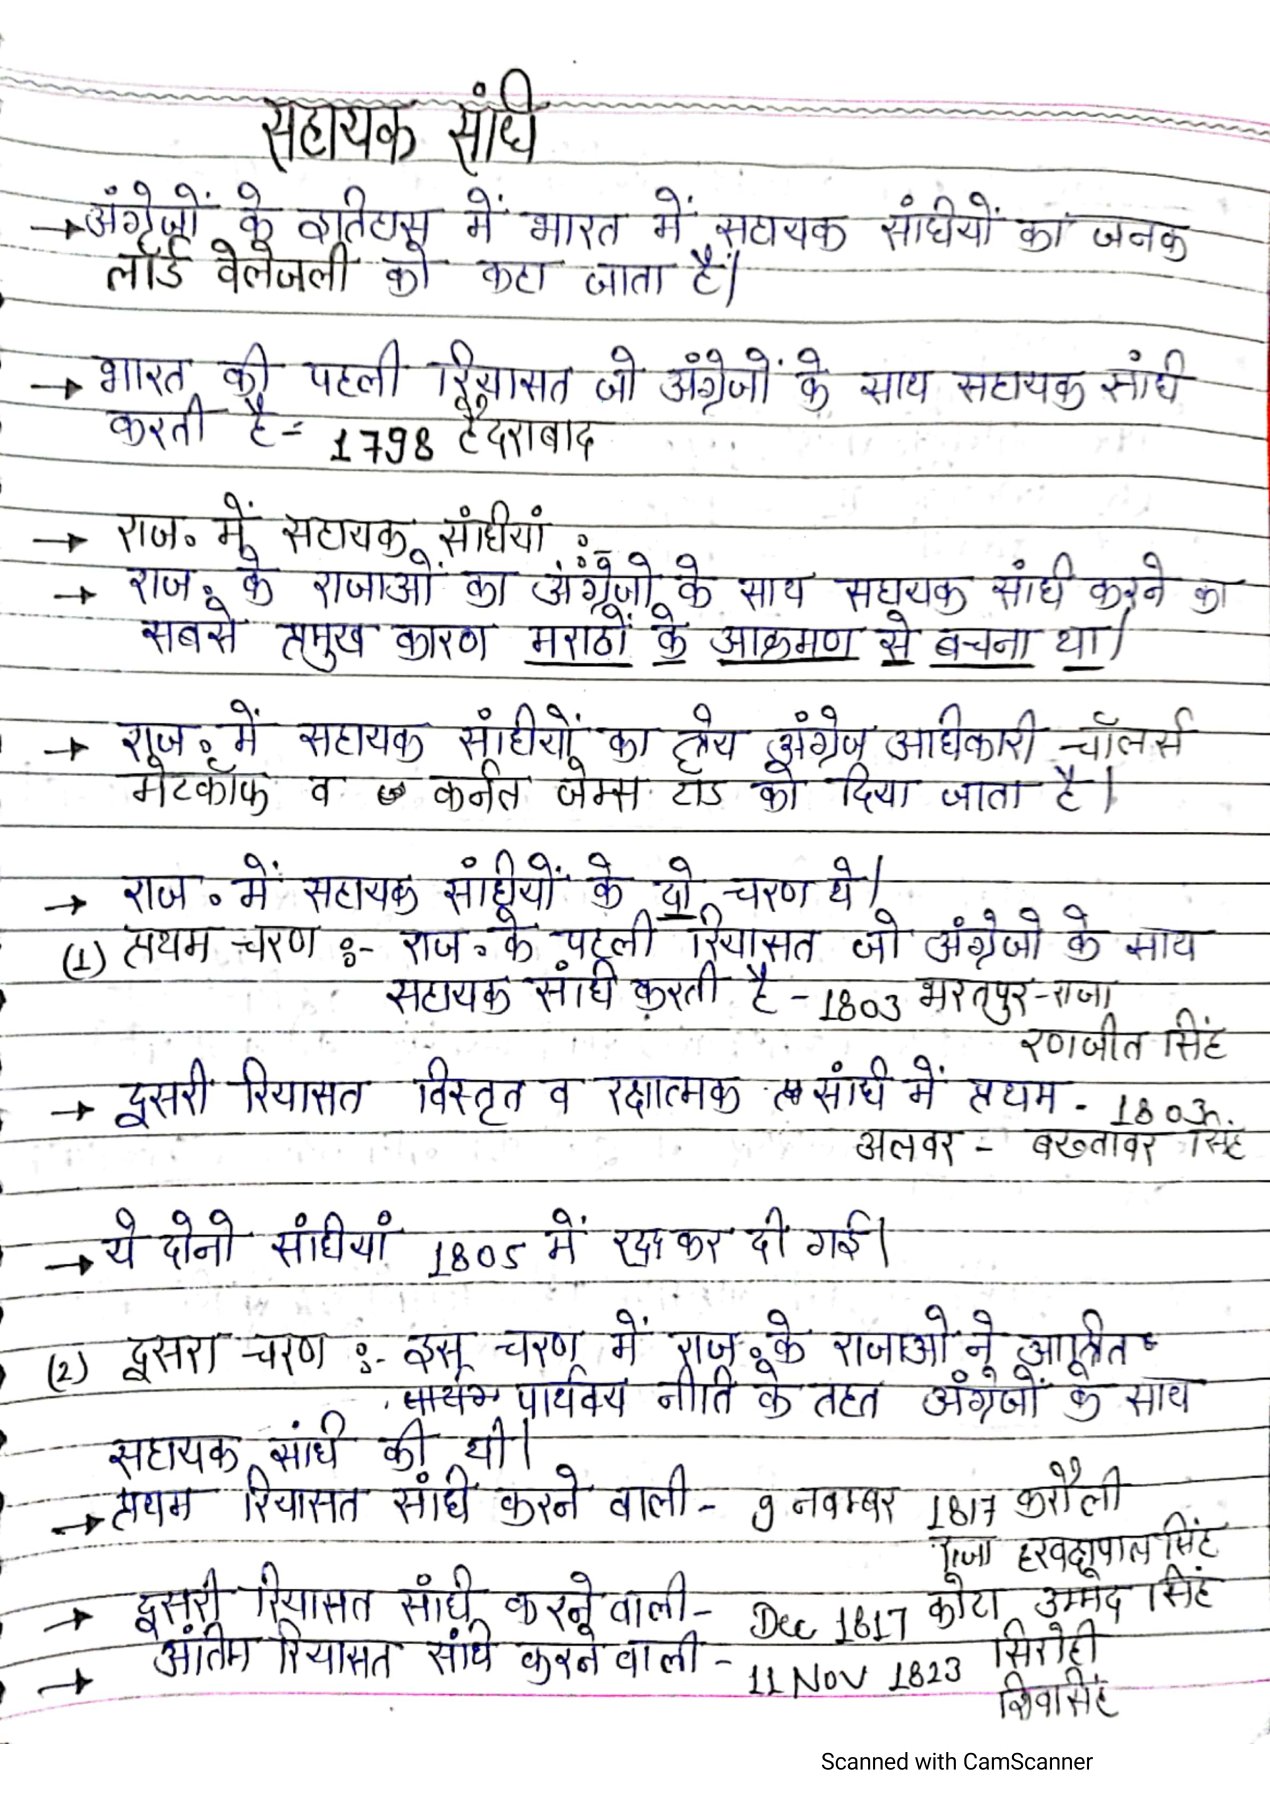 सहायक संधि
→ अंग्रेजों के इतिहास में भारत में सहायक संधियों का जनक
लॉर्ड वेलेजली को कहा जाता है।
→ भारत की पहली रियासत जो अंग्रेजों के साथ सहायक संधि
करती है = 1798 हैदराबाद
→ राज॰ में सहायक संधियां :-
→ राज॰ के राजाओं का अंग्रेजो के साथ सहायक संधि करने का
सबसे प्रमुख कारण मराठों के आक्रमण से बचना था।
→ राज॰ में सहायक संधीयों का श्रेय अंग्रेज अधिकारी चॉलर्स
मेटकॉफ व कर्नल जेम्स टॉड को दिया जाता है।
→ राज॰ में सहायक संधियों के दो चरण थे।
(1) प्रथम चरण :- राज॰ के पहली रियासत जो अंग्रेजो के साथ
सहायक संधि करती है - 1803 भरतपुर - राजा
रणजीत सिंह
→ दूसरी रियासत विस्तृत व रक्षात्मक संधि में प्रथम - 1803
अलवर - बख्तावर सिंह
→ ये दोनो संधियां 1805 में रद्द कर दी गई।
(2) दूसरा चरण :- इस चरण में राज॰ के राजाओ ने आश्रित
पार्थक्य नीति के तहत अंग्रेजों के साथ
सहायक संधि की थी।
→ प्रथम रियासत संधि करने वाली - 9 नवम्बर 1817 करौली
राजा हरवक्षपाल सिंह
→ दूसरी रियासत संधि करने वाली - Dec 1817 कोटा उम्मेद सिंह
→ अंतिम रियासत संधि करने वाली - 11 Nov 1823 सिरोही
शिवसिंह
Scanned with CamScanner